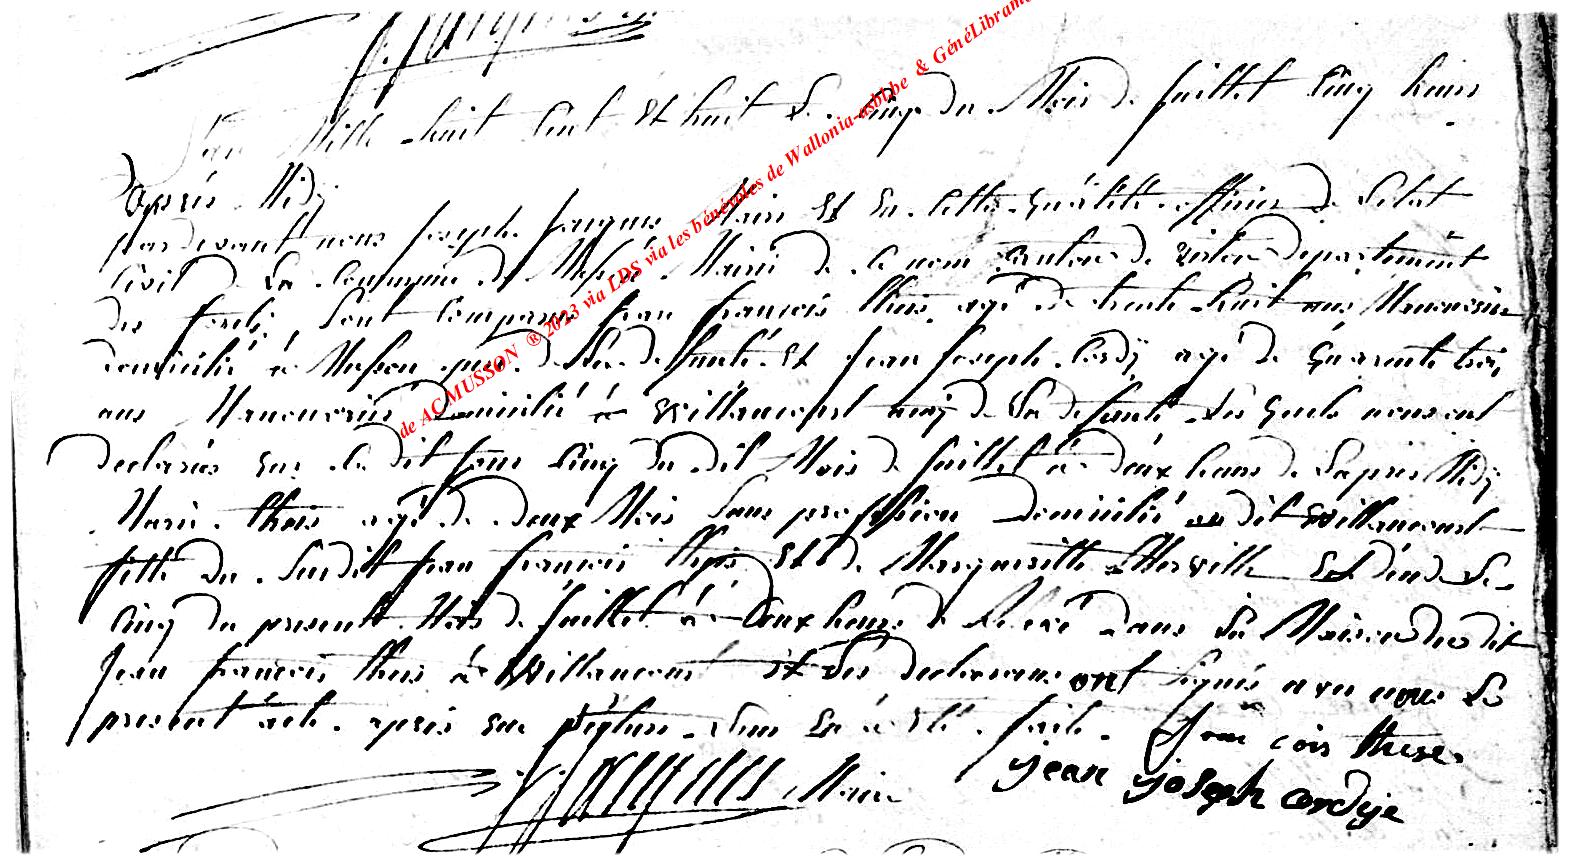 L'an Mille huit Cent Et huit Le Cinq du Mois de juillet Cinq heures
après Midy
pardevant nous joseph jacques Maire Et En Cette qualité officier de L'etat
Civil de La Commune de Musson Mairie de Ce nom canton de virton departement
des forêts, Sont Comparus jean françois thus agé de trente huit ans Manouvrier
domicilié à Musson pere de La defunte Et jean joseph Cordy agé de quarante trois
ans Manouvrier Domicilié à Willancourt amy de La defunte Les quels nous ont
declarés que Le dit jour Cinq du dit Mois de juillet à deux heures de Lapres Midy
Marie agé de deux Mois Sans profession Domicilié au dit Willancourt
fille du Susdit jean françois Et de Margueritte Merville Est décedé Le
Cinq du present Mois de juillet à Deux heures de Relevé dans La Maison du dit
jean françois thus à Willancourt Et Les declarans ont Signés avec nous Le
present acte après que Lecture Leur En a été faite. Jean cois these
Maire jean joseph cordije
de AC MUSSON ® 2023 via LDS via les bénévoles de Wallonia-asbl.be & GénéLibrame